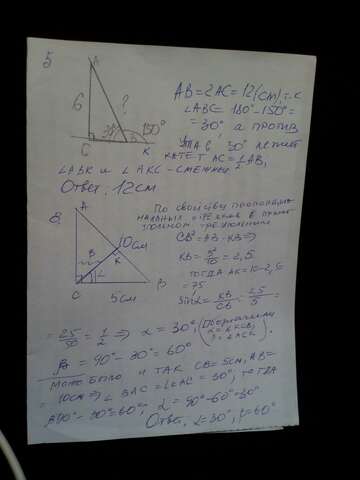 5
A
6
?
30°
150°
C
B
K
AB=2AC=12(см)=к
∠ABC=180°-150°=
=30° а против
угла в 30° лежит
катет AC=½AB,
∠ABK и ∠AKC-смежные
Ответ: 12см
8.
A
10см
K
β
α
C
5см
B
По свойству пропорцио-
нальных отрезков в прямо-
угольном треугольнике
CB²=AB·KB⇒
KB=5²/10=2,5
тогда AK=10-2,5=
=75
Sinα=KB/CB=2,5/5=
=25/50=1/2⇒α=30°, (Обозначили
α=∠KCB,
β=∠ACK).
β=90°-30°=60°
Можно было и так CB=5см, AB=
=10см⇒∠BAC=∠CAK=30°, тогда
β=90°-30°=60°, α=90°-60°=30°
Ответ, α=30°, β=60°